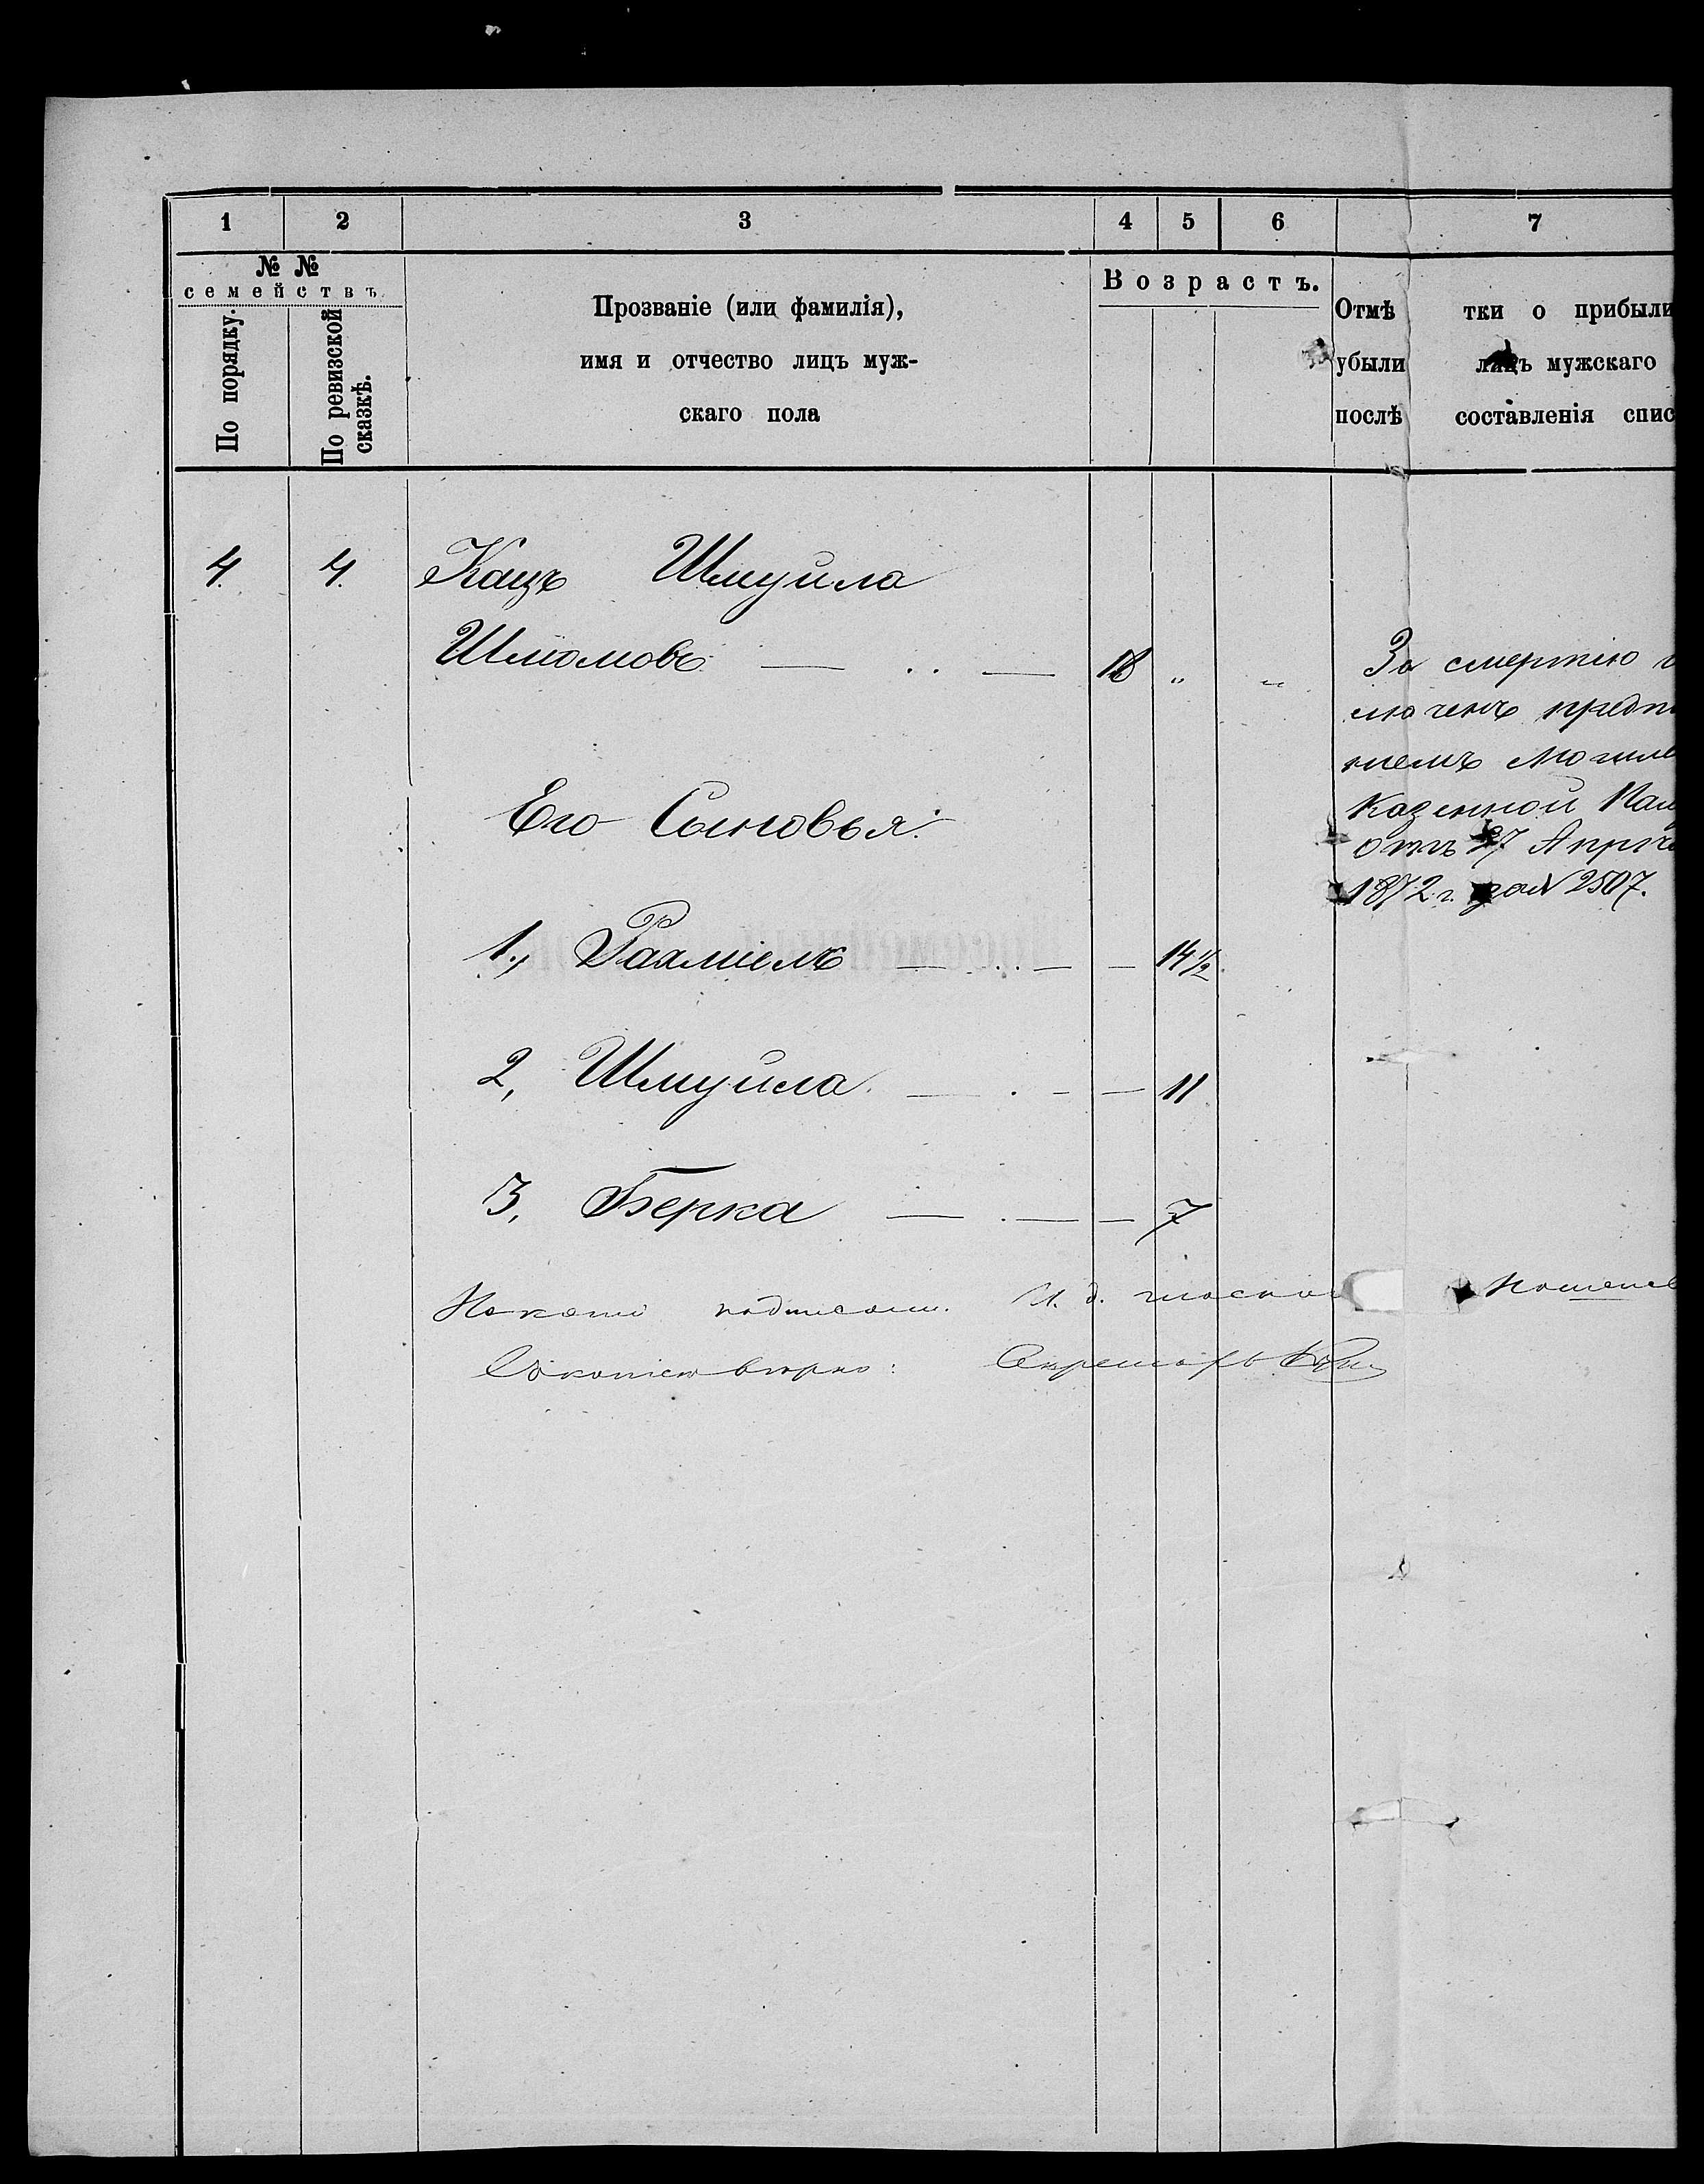 1 2 3 4 5 6 7
№ № семействъ.
По порядку.
По ревизской сказкѣ.
Прозваніе (или фамилія),
имя и отчество лицъ муж-
скаго пола
Возрастъ.
Отмѣтки о прибыли
убыли лицъ мужскаго
послѣ составленія спис
4. 4. Кацъ Шмуйла
Шліомовъ 18 " "
За смертію
ключенъ предп
ніемъ Могиле
Казенной Пал
отъ 27 Апрѣ
1872 г. за № 2507.
Его Сыновья:
1., Рахміель 14 1/2
2, Шмуйла 11
3, Берка 7
подписали. И. д.
Съ копіею вѣрно: Секретарь